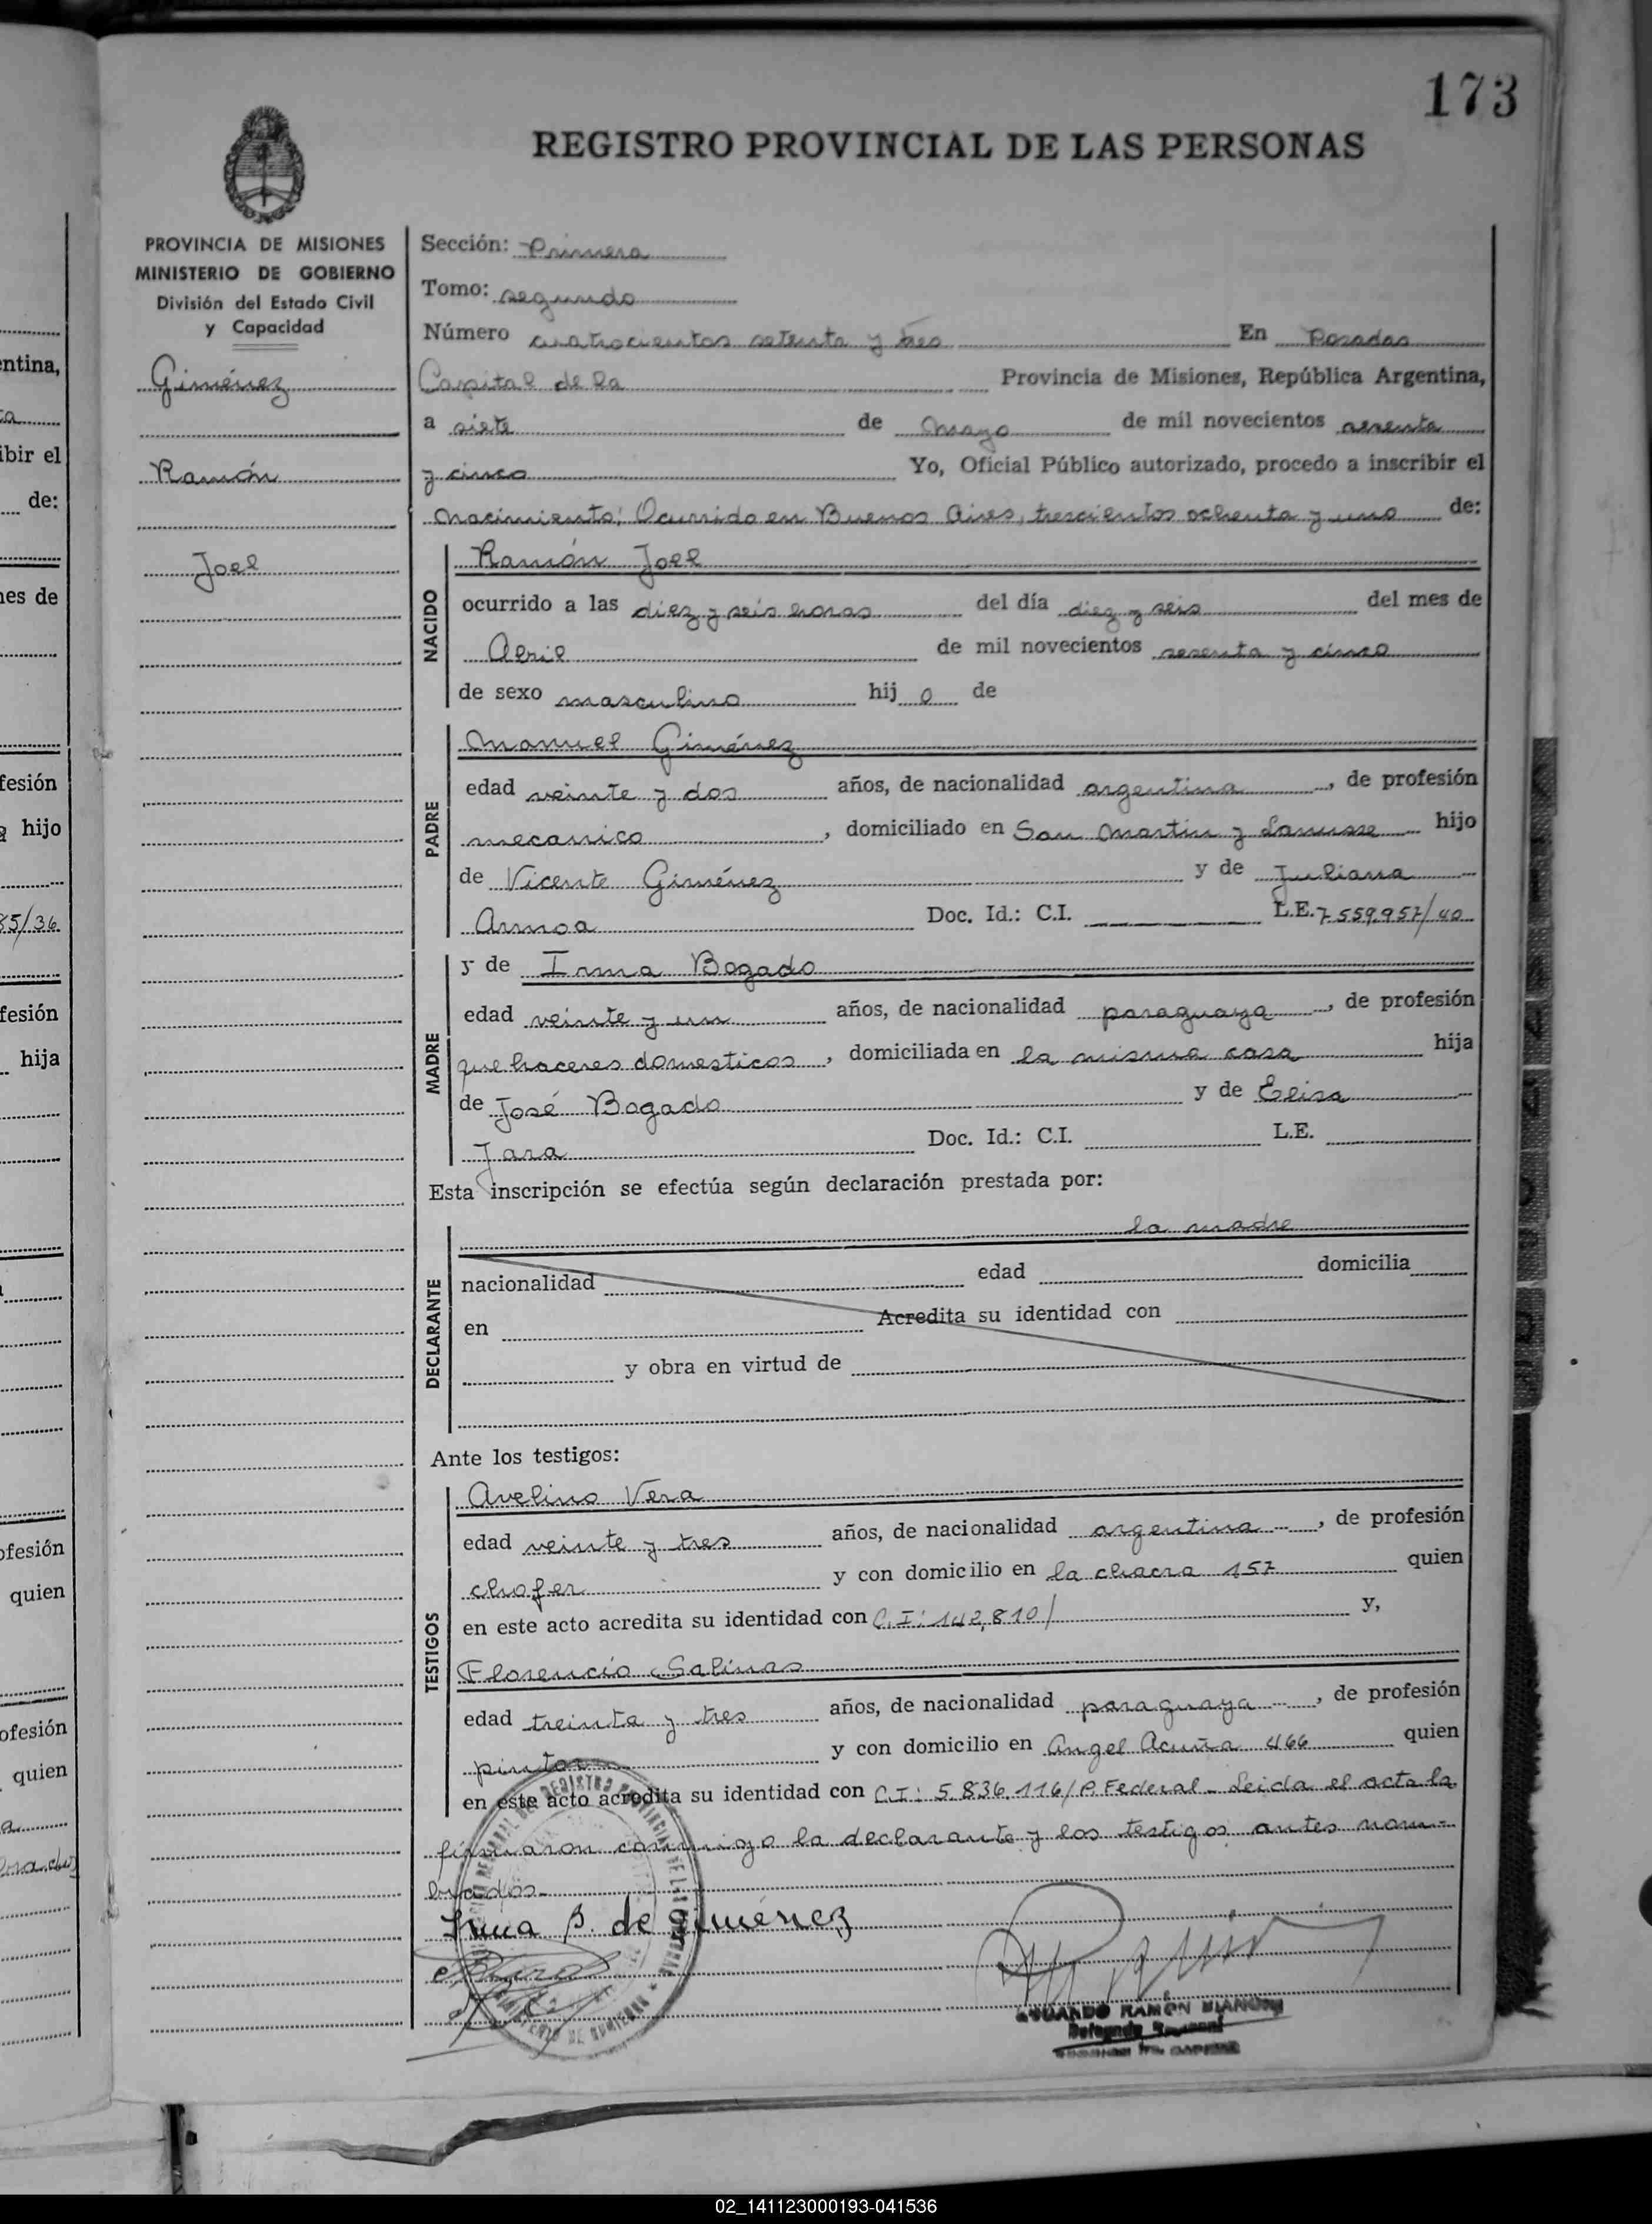 173
REGISTRO PROVINCIAL DE LAS PERSONAS
PROVINCIA DE MISIONES
MINISTERIO DE GOBIERNO
División del Estado Civil
y Capacidad
Giménez
Ramón
Joel
Sección: Primera
Tomo: segundo
Número cuatrocientos setenta y tres En Posadas
Capital de la Provincia de Misiones, República Argentina,
a siete de Mayo de mil novecientos sesenta
y cinco Yo, Oficial Público autorizado, procedo a inscribir el
Nacimiento; Ocurrido en Buenos Aires, trescientos ochenta y uno de:
NACIDO
Ramón Joel
ocurrido a las diez y seis horas del día diez y seis del mes de
Abril de mil novecientos sesenta y cinco
de sexo masculino hij o de
PADRE
Manuel Giménez
edad veinte y dos años, de nacionalidad argentina, de profesión
mecanico, domiciliado en San Martin y Lanusse hijo
de Vicente Giménez y de Juliana
Armoa Doc. Id.: C.I. L.E. 7.559.957/40
MADRE
y de Irma Bogado
edad veinte y un años, de nacionalidad paraguaya, de profesión
que haceres domesticos, domiciliada en la misma casa hija
de José Bogado y de Elisa
Jara Doc. Id.: C.I. L.E.
Esta inscripción se efectúa según declaración prestada por:
la madre
DECLARANTE
nacionalidad edad domicilia
en Acredita su identidad con
y obra en virtud de
Ante los testigos:
TESTIGOS
Avelino Vera
edad veinte y tres años, de nacionalidad argentina, de profesión
chofer y con domicilio en la chacra 157 quien
en este acto acredita su identidad con C.I: 142,810/ y,
Florencio Salinas
edad treinta y tres años, de nacionalidad paraguaya, de profesión
pintor y con domicilio en Angel Acuña 466 quien
en este acto acredita su identidad con C.I: 5.836.116/P. Federal - Leida el acta la
firmaron conmigo la declarante y los testigos antes nom-
brados.
Irma B. de Giménez
RAMÓN
02_141123000193-041536